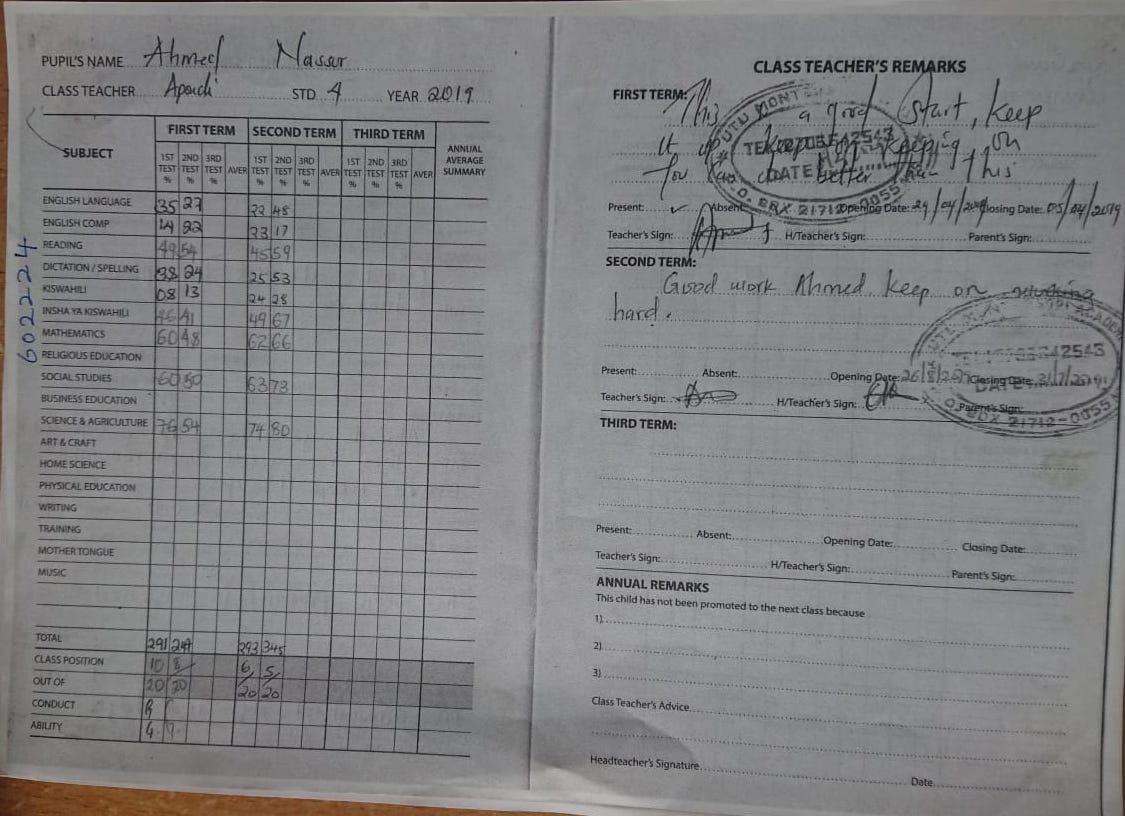 PUPIL'S NAME Ahmed Nassur
CLASS TEACHER Apondi STD. 4 YEAR 2019
SUBJECT FIRST TERM SECOND TERM THIRD TERM ANNUAL AVERAGE SUMMARY
1ST TEST % 2ND TEST % 3RD TEST % AVER 1ST TEST % 2ND TEST % 3RD TEST % AVER 1ST TEST % 2ND TEST % 3RD TEST % AVER
ENGLISH LANGUAGE 35 27 22 48
ENGLISH COMP 22 33 17
READING 49 54 45 59
DICTATION / SPELLING 38 24 25 53
KISWAHILI 08 13 24 28
INSHA YA KISWAHILI 41 49 67
MATHEMATICS 60 48 62 66
RELIGIOUS EDUCATION
SOCIAL STUDIES 60 50 63 73
BUSINESS EDUCATION
SCIENCE & AGRICULTURE 76 54 74 80
ART & CRAFT
HOME SCIENCE
PHYSICAL EDUCATION
WRITING
TRAINING
MOTHER TONGUE
MUSIC
TOTAL 291 293 345
CLASS POSITION 10 8 6 5
OUT OF 20 20 20 20
CONDUCT
ABILITY
602224
CLASS TEACHER'S REMARKS
FIRST TERM: This a good start, keep
it up keeping on
for better than this
Present: Absent: Opening Date: Closing Date: 05/04/2019
Teacher's Sign: H/Teacher's Sign: Parent's Sign:
SECOND TERM:
Good work Ahmed keep on
hard.
Present: Absent: Opening Date: Closing Date:
Teacher's Sign: H/Teacher's Sign: Parent's Sign:
THIRD TERM:
Present: Absent: Opening Date: Closing Date:
Teacher's Sign: H/Teacher's Sign: Parent's Sign:
ANNUAL REMARKS
This child has not been promoted to the next class because
1)
2)
3)
Class Teacher's Advice
Headteacher's Signature Date